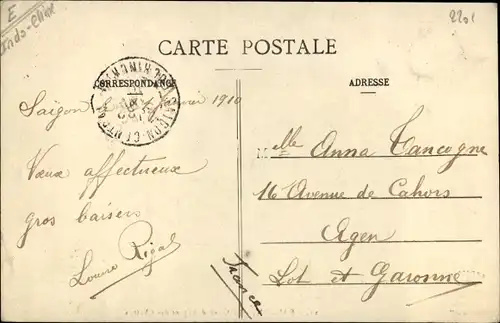 E
Indo-Chine
2201
CARTE POSTALE
CORRESPONDANCE
ADRESSE
SAIGON-CENTRAL COCHINCHINE
Saïgon janvier 1910
Vœux affectueux
gros baisers
Louise Rigal
Melle Anna Tancogne
16 Avenue de Cahors
Agen
Lot et Garonne
France